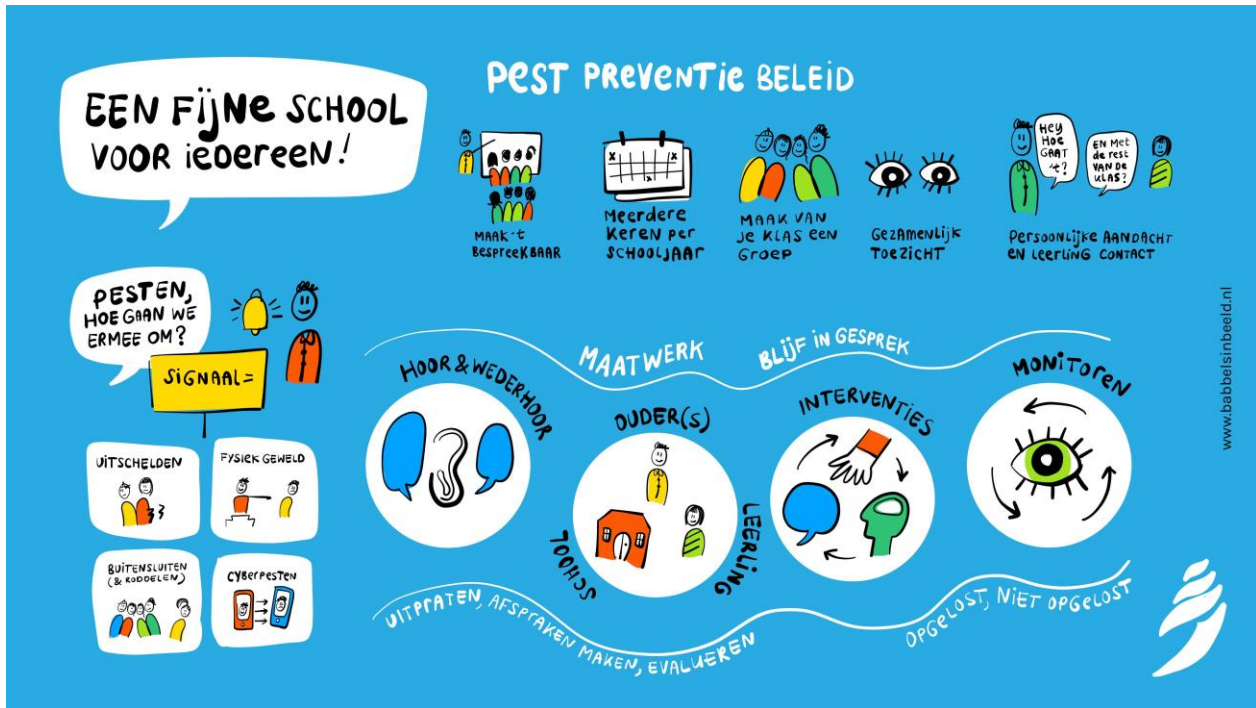 EEN FijNe SCHOOL
VOOR iedereen!
PEST PREVENTIE BELEID
MAAK 't
BESPREEKBAAR
Meerdere
Keren per
SCHOOLJAAR
MAAK VAN
Je KLAS EEN
Groep
GEZAMENLIJK
TOEZICHT
Hey
HOE
GAAT
't?
EN MET
de rest
VAN DE
KLAS?
Persoonlijke AANDACHT
EN Leerling CONTACT
PESTEN,
HOE GAAN WE
ERMEE OM?
SiGNAAL=
UITSCHELDEN
FYSIEK GEWELD
BUITENSLUITEN
(& RODDELEN)
CYBERPESTEN
MAATWERK
BLIJF IN GESPREK
HOOR & WEDERHOOR
OUDER(S)
SCHOOL
LEERLING
INTERVENTIES
MONITOREN
UITPRATEN, AFSPRAKEN MAKEN, EVALUEREN
OPGELOST, NIET OPGELOST
www.babbelsinbeeld.nl